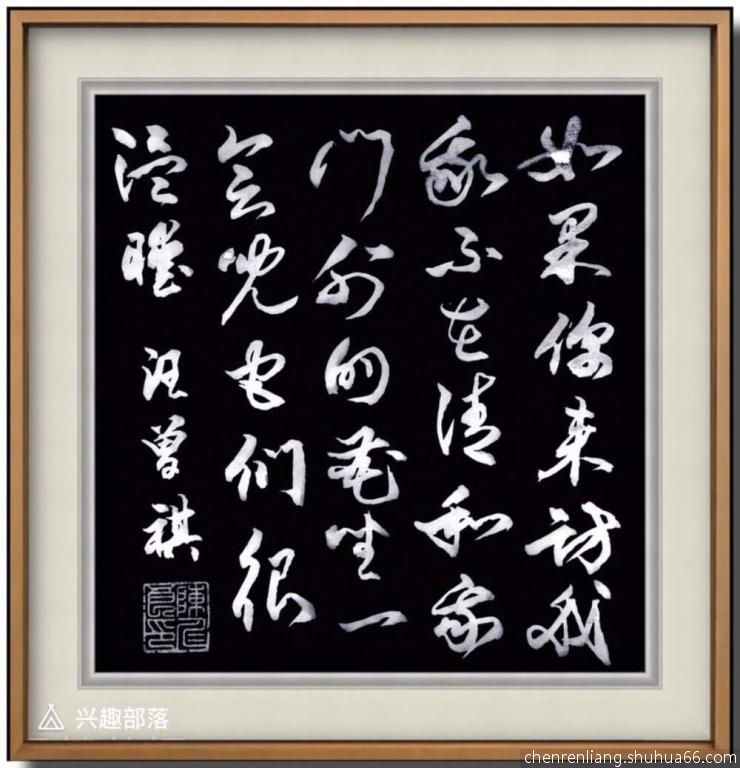 如果你来访我
我不在请和家
门外的花坐一
会儿它们很
温暖 汪曾祺
陳仁良印
兴趣部落
chenrenliang.shuhua66.com